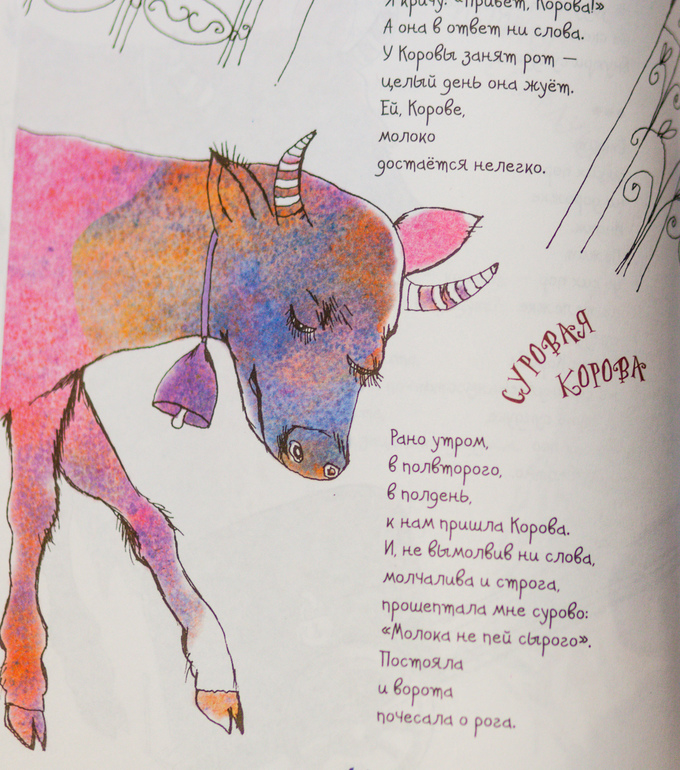 Я кричу: «Привет, Корова!»
А она в ответ ни слова.
У Коровы занят рот —
целый день она жуёт.
Ей, Корове,
молоко
достаётся нелегко.
СУРОВАЯ
КОРОВА
Рано утром,
в полвторого,
в полдень,
к нам пришла Корова.
И, не вымолвив ни слова,
молчалива и строга,
прошептала мне сурово:
«Молока не пей сырого».
Постояла
и ворота
почесала о рога.